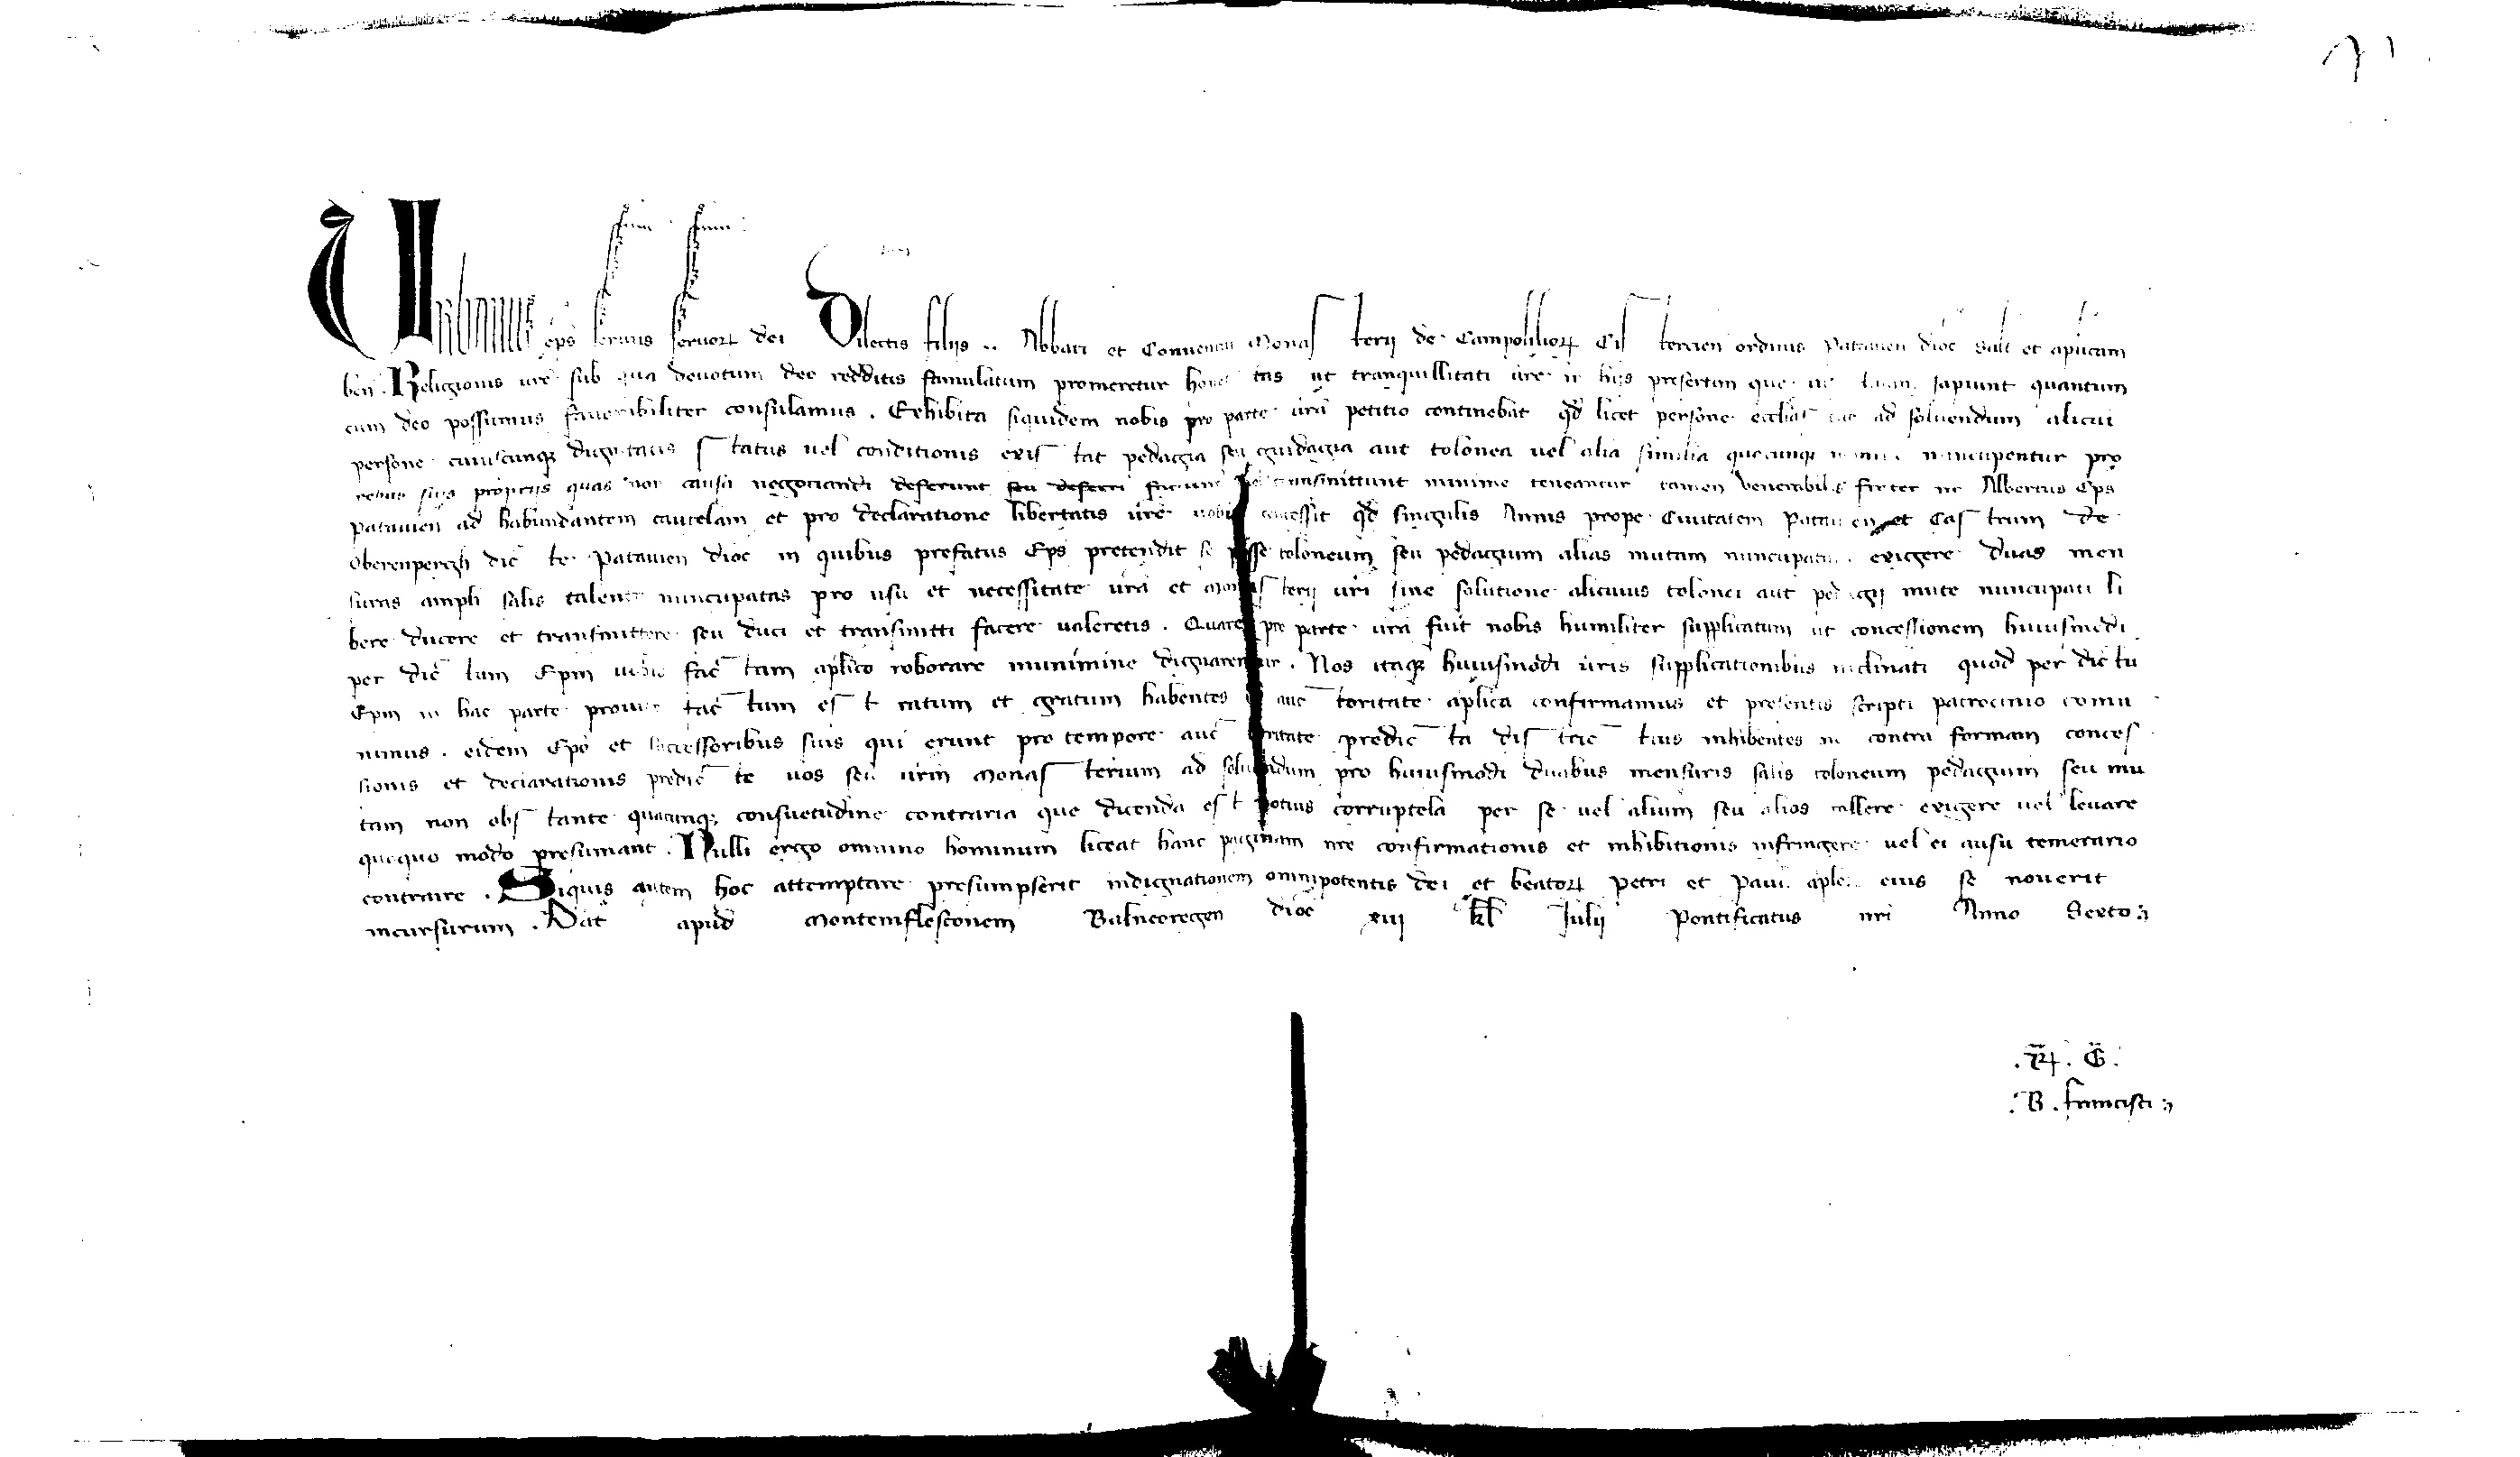 Urbanus eps servus servoꝝ dei Dilectis filijs .. Abbati et Conventui Monasterij de Campoliliorꝝ Cistercien ordinis Patavien dioc Salt et aplicam
ben. Religionis vre sub qua devotum deo redditis famulatum promeretur honestas ut tranquillitati vre in hijs presertim que sapiunt quantum
cum deo possumus favorabiliter consulamus. Exhibita siquidem nobis pro parte vra petitio continebat qd licet persone ecclias ad solvendum alicui
persone cuiuscunqꝫ dignitatis status vel conditionis existat pedagia seu guidagia aut tolonea vel alia similia quecunqꝫ nuncupentur pro
rebus suis proprijs quas non causa negociandi deferunt seu deferri faciunt transmittunt minime teneantur tamen venerabilis frater nr Albertus Eps
Patavien ad habundantem cautelam et pro declaratione libertatis vre vobis concessit qd singulis Annis prope Civitatem Patavien et Castrum de
Oberenpergh dicte Patavien dioc in quibus prefatus Eps pretendit se posse toloneum seu pedagium alias mutam nuncupatum exigere duas men
suras ampli salis talenta nuncupatas pro usu et necessitate vra et Monasterij vri sine solutione alicuius tolonei aut pedagij mute nuncupati li
bere ducere et transmittere seu duci et transmitti facere valeretis. Quare pro parte vra fuit nobis humiliter supplicatum ut concessionem huiusmodi
per dictum Epm vobis factam aplico roborare munimine dignaremur. Nos itaqꝫ huiusmodi vris supplicationibus inclinati quod per dictu
Epm in hac parte factum est ratum et gratum habentes auctoritate aplica confirmamus et presentis scripti patrocinio comu
nimus. eidem Epo et successoribus suis qui erunt pro tempore auctoritate predicta districtius inhibentes ne contra formam conces
sionis et declarationis predicte vos seu vrm Monasterium ad solvendum pro huiusmodi duabus mensuris salis toloneum pedagium seu mu
tam non obstante quacunqꝫ consuetudine contraria que dicenda est potius corruptela per se vel alium seu alios tollere exigere vel levare
quoquo modo presumant. Nulli ergo omnino hominum liceat hanc paginam nre confirmationis et inhibitionis infringere vel ei ausu temerario
contraire. Siquis autem hoc attemptare presumpserit indignationem omnipotentis dei et beatorꝝ Petri et Pauli aplorꝝ eius se noverit
incursurum. Dat apud Montemflasconem Balneoregen dioc xiij kl Julij Pontificatus nri Anno Sexto
.G.
.B. Francisci